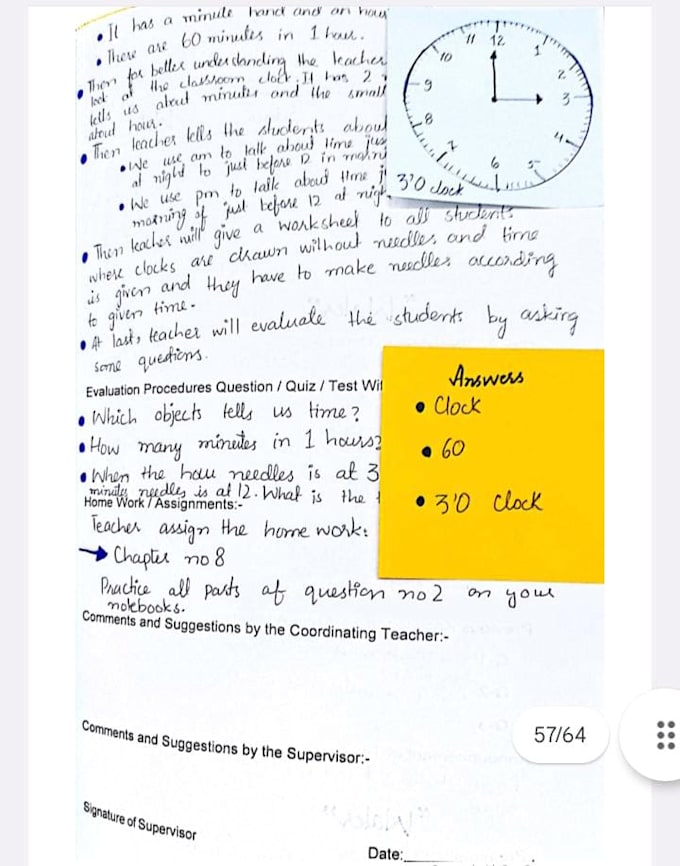 • It has a minute hand and an hour
• There are 60 minutes in 1 hour.
• Then for better understanding the teacher
look at the classroom clock. It has 2
tells us about minutes and the small
about hour.
• Then teacher tells the students about
• We use am to talk about time jus
at night to just before 12 in morni
• We use pm to talk about time j
morning of just before 12 at nigh
• Then teacher will give a worksheet to all students
where clocks are drawn without needles, and time
is given and they have to make needles according
to given time.
• At last, teacher will evaluate the students by asking
some questions.
11 12 1
10 2
9 3
8 4
7 6 5
3'O clock
Evaluation Procedures Question / Quiz / Test Wri
• Which objects tells us time?
• How many minutes in 1 hours?
• When the hour needles is at 3
minutes needles is at 12. What is the t
Answers
• Clock
• 60
• 3'O Clock
Home Work / Assignments:-
Teacher assign the home work:
→ Chapter no 8
Practice all parts of question no 2 on your
notebooks.
Comments and Suggestions by the Coordinating Teacher:-
Comments and Suggestions by the Supervisor:-
57/64
Signature of Supervisor
Date: